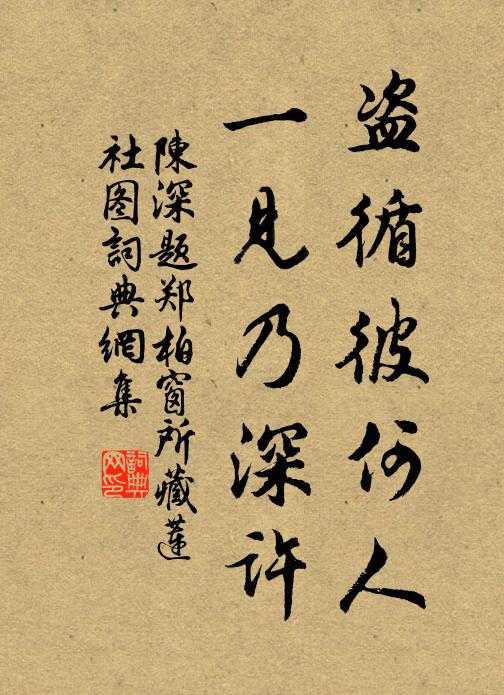 盗循彼何人
一见乃深许
陳深题郑柏窗所藏蓮
社图詞典網集
詞典
网印